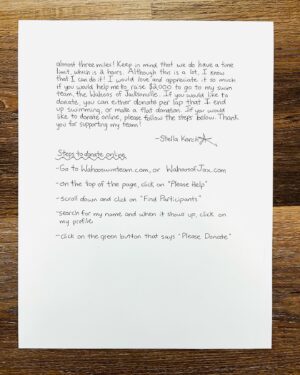 almost three miles! Keep in mind that we do have a time
limit, which is 2 hours. Although this is a lot, I know
that I can do it! I would love and appreciate it so much
if you would help me to raise $2,000 to go to my swim
team, the Wahoos of Jacksonville. If you would like to
donate, you can either donate per lap that I end
up swimming, or make a flat donation. If you would
like to donate online, please follow the steps below. Thank
you for supporting my team!
-Stella
Steps to donate online
-Go to Wahooswimteam.com, or WahoosofJax.com
-on the top of the page, click on "Please Help"
-scroll down and click on "Find Participants"
-search for my name and when it shows up, click on
my profile
-click on the green button that says "Please Donate"